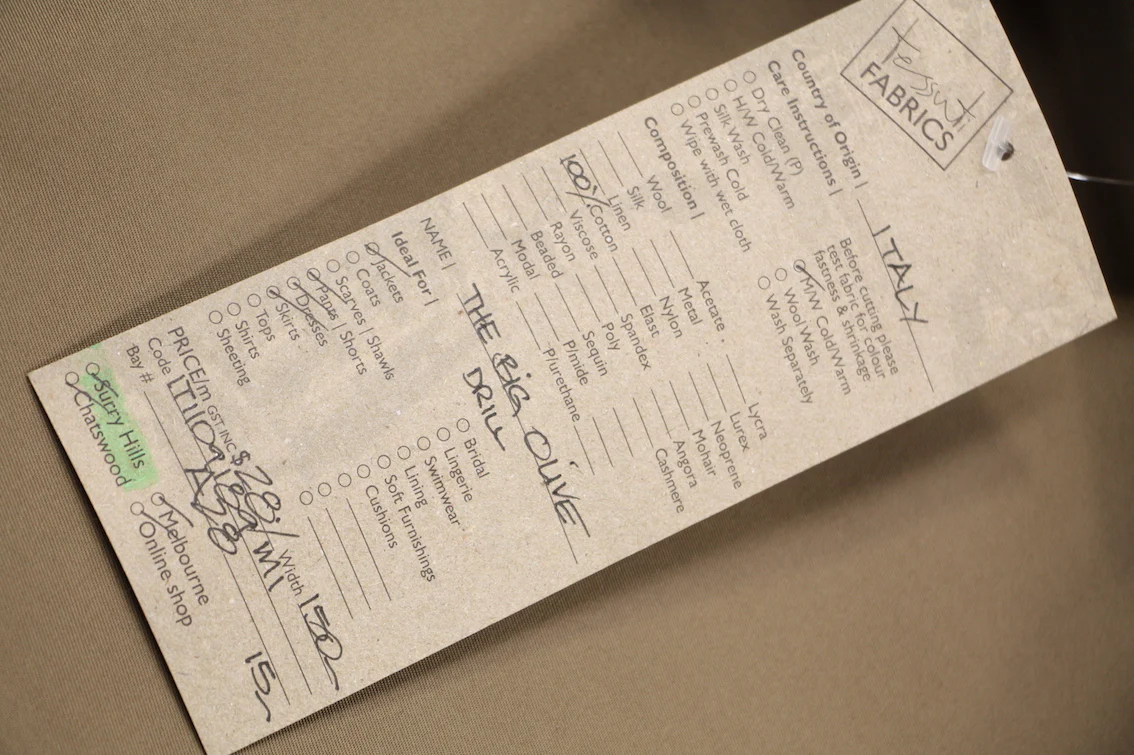 tessuti
FABRICS
Country of Origin | ITALY
Care Instructions |
Before cutting please
test fabric for colour
fastness & shrinkage
Dry Clean (P)
H/W Cold/Warm
Silk Wash
Prewash Cold
Wipe with wet cloth
M/W Cold/Warm
Wool Wash
Wash Separately
Composition |
Wool
Silk
Linen
100% Cotton
Viscose
Rayon
Beaded
Modal
Acrylic
Acetate
Metal
Nylon
Elast
Spandex
Poly
Sequin
P/mide
P/urethane
Lycra
Lurex
Neoprene
Mohair
Angora
Cashmere
NAME | THE BIG OLIVE
DRILL
Ideal For |
Jackets
Coats
Scarves | Shawls
Pants | Shorts
Dresses
Skirts
Tops
Shirts
Sheeting
Bridal
Lingerie
Swimwear
Lining
Soft Furnishings
Cushions
PRICE/m GST INC $28/ Width 150
Code
Bay # 15
Surry Hills
Chatswood
Melbourne
Online shop